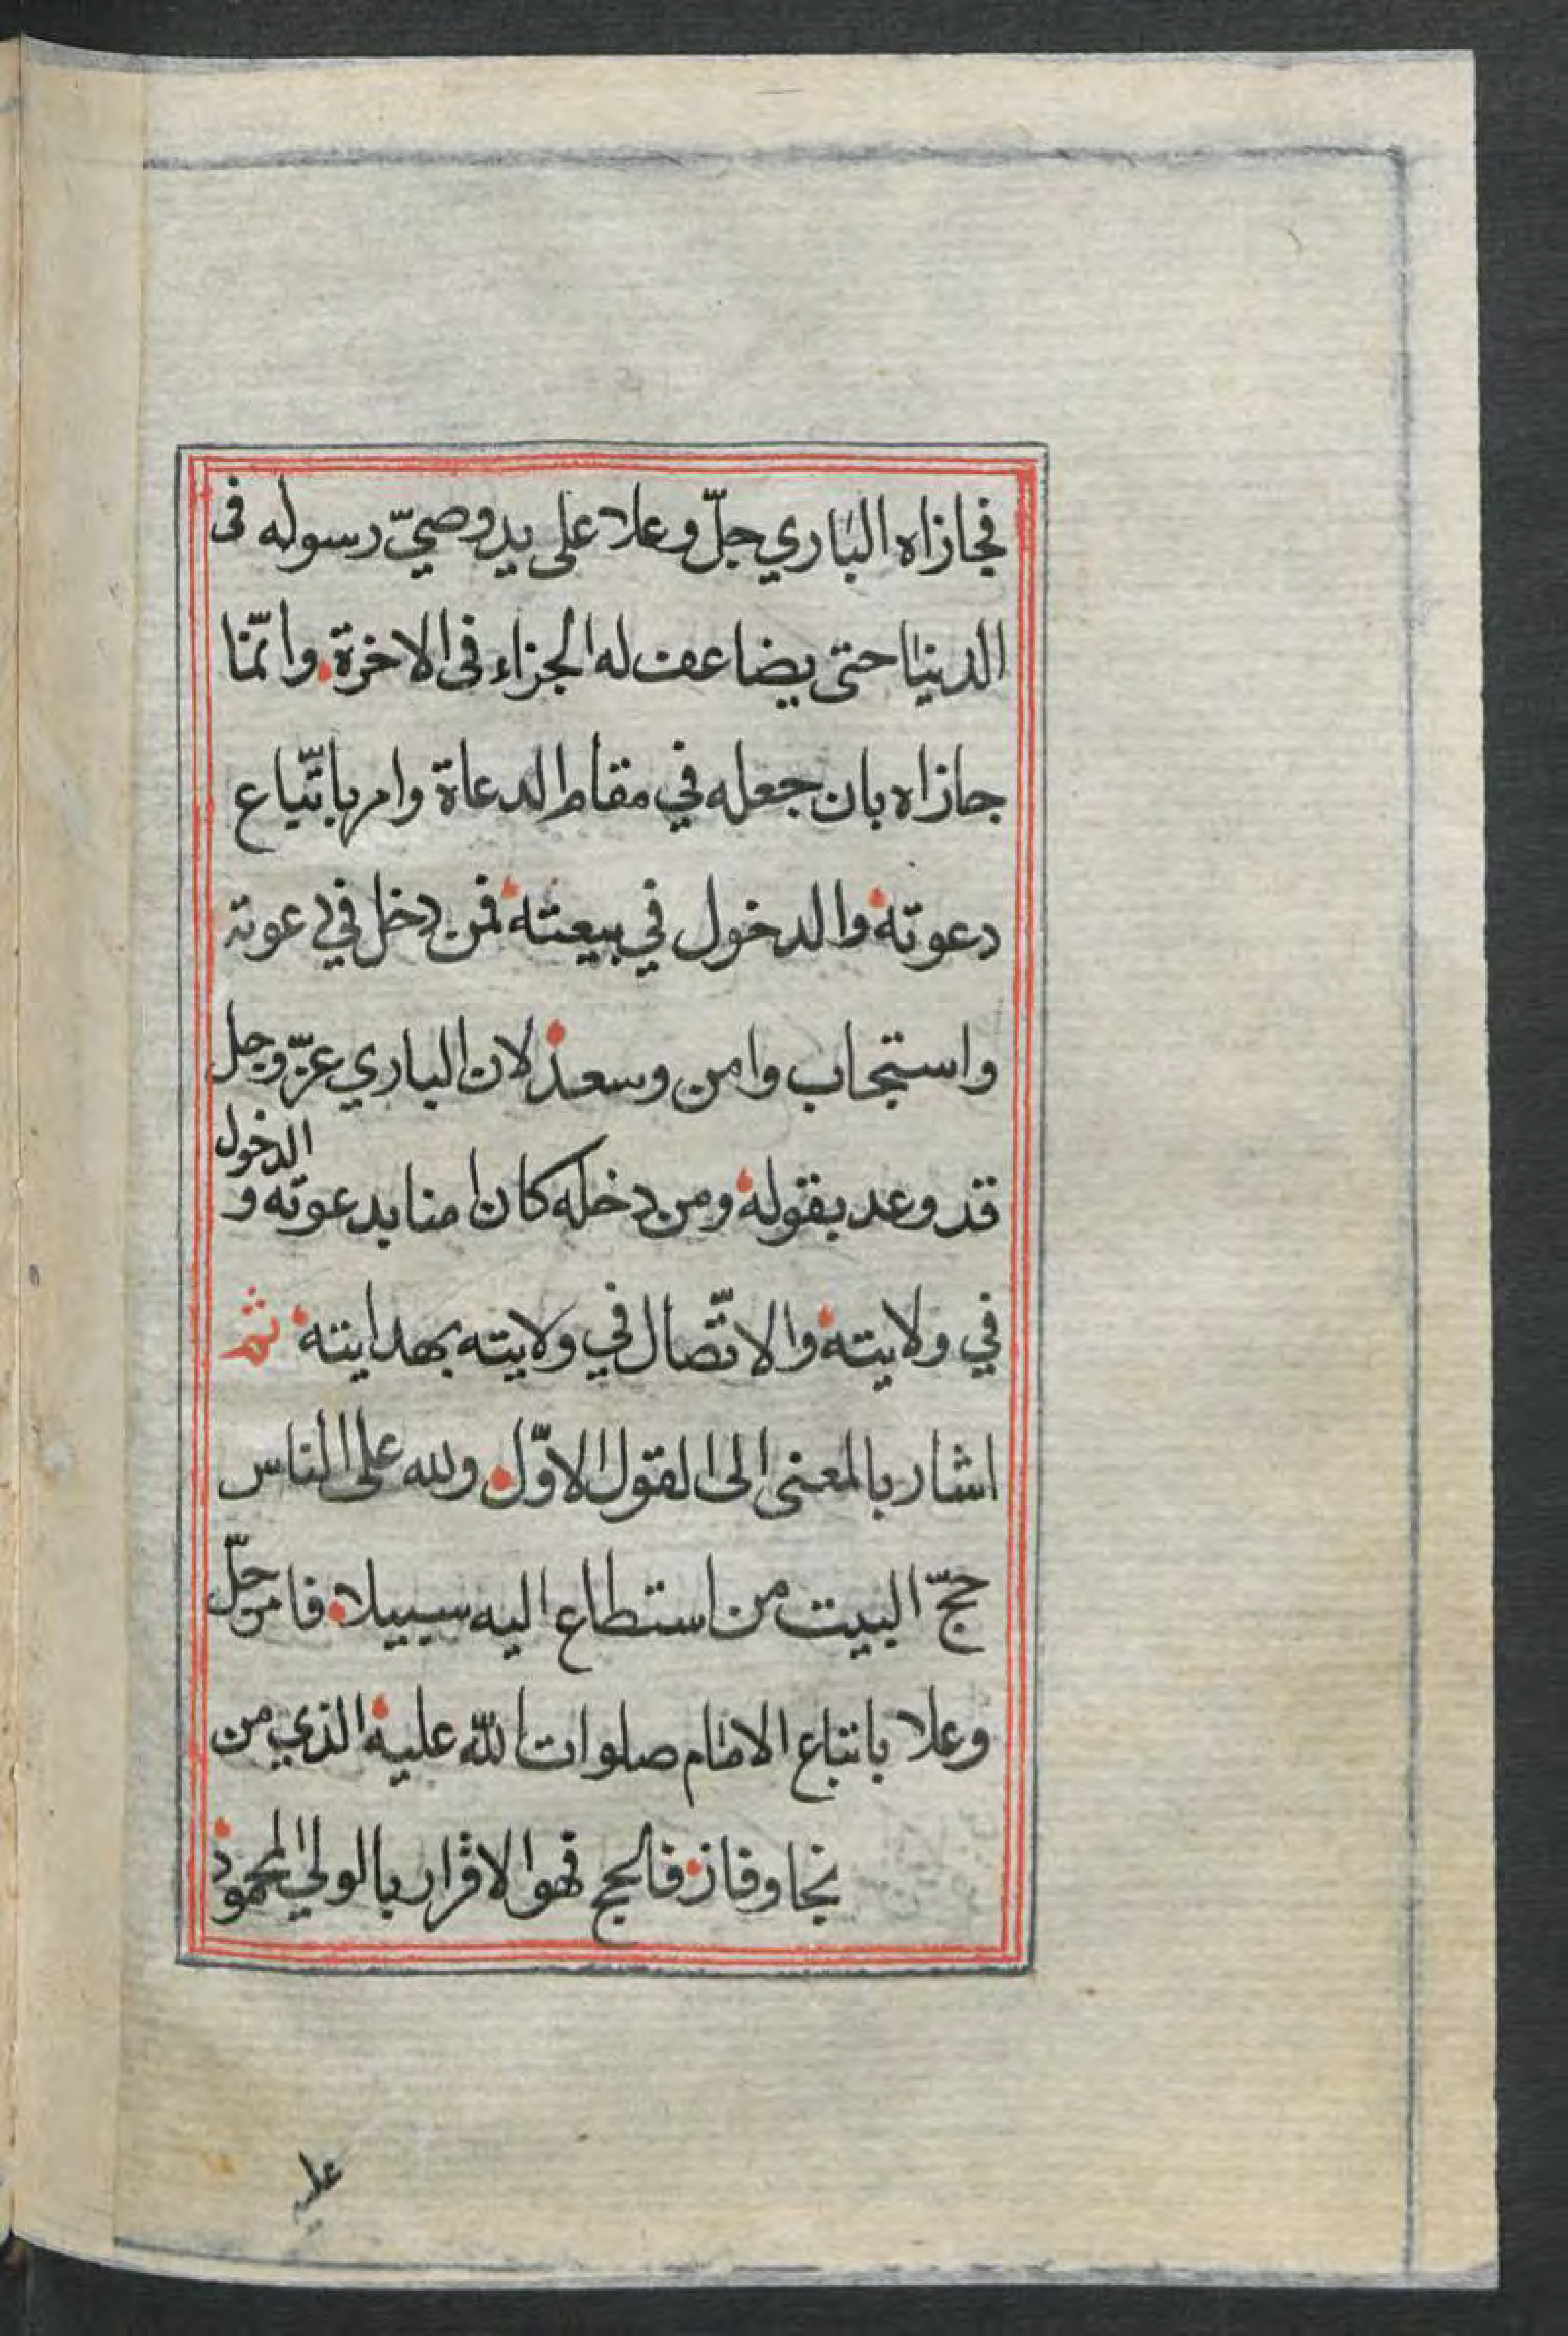 فجازاه الباري جلّ وعلا على يد وصيّ رسوله فى
الدنيا حتى يضاعف له الجزاء فى الاخرة وانّما
جازاه بان جعله في مقام الدعاة وامر باتّباع
دعوته والدخول في بيعته فمن دخل في دعوته
واستجاب وامن وسعد لان الباري عزّ وجل
قد وعد بقوله ومن دخله كان امنا بدعوته و الدخول
في ولايته والاتّصال في ولايته بهدايته ثم
اشار بالمعنى الى القول الاوّل ولله على الناس
حجّ البيت من استطاع اليه سبيلا فامر جلّ
وعلا باتباع الامام صلوات الله عليه الذي من
نجا وفاز فالحج فهو الاقرار بالولي المحمود
عليه